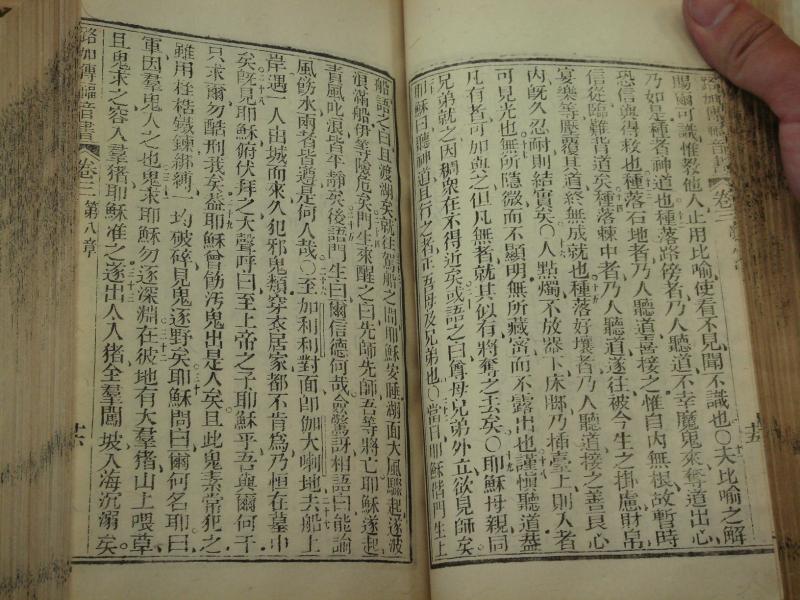 路加傳福音書 卷三
賜爾可識惟教他人止用比喻使看不見聞不識也〇夫比喻之解
乃如是種者神道也種落路傍者乃人聽道不幸魔鬼來奪道出心
恐信與得救也種落石地者乃人聽道喜接之惟自內無根故暫時
信從臨難背道矣種落棘中者乃人聽道遂往被今生之掛慮財帛
宴樂等壓覆其道終無成就也種落好壤者乃人聽道接之善良心
內既久忍耐則結實矣〇人點燭不放器下床腳乃插臺上則入者
可見光也無所隱微而不顯明無所藏密而不露出也謹慎聽道蓋
凡有者可加與之但凡無者就其似有將奪之去矣〇耶穌母親同
兄弟就之因稠眾在不得近矣或語之曰尊母兄弟外立欲見師矣
耶穌曰聽神道且行之者正吾母及兄弟也〇當日耶穌偕門生上
十五
船語之曰且渡湖矣就往駕船之間耶穌安睡湖面大風驟起遂波
浪滿船伊等險危矣門生來醒之曰先師先師吾等將亡耶穌遂起
責風叱浪皆平靜矣後語門生曰爾信德何哉僉驚訝相語曰能諭
風飭水兩者皆遵是何人哉〇至加利利對面即伽大喇地去船上
岸遇一人出城而來久犯邪鬼類穿衣居家都不肯為乃恒在墓中
矣既見耶穌俯伏拜之大聲呼曰至上帝之子耶穌乎吾與爾何干
只求爾勿酷刑我矣蓋耶穌曾飭污鬼出是人矣且此鬼素常犯之
雖用桎梏鐵鍊綁縛一均破碎見鬼逐野矣耶穌問曰爾何名耶曰
軍因羣鬼入之也鬼求耶穌勿逐深淵在彼地有大羣猪山上喂草
且鬼求之容入羣猪耶穌准之遂出人入猪全羣闖坡入海沉溺矣
路加傳福音書 卷三 第八章
十六